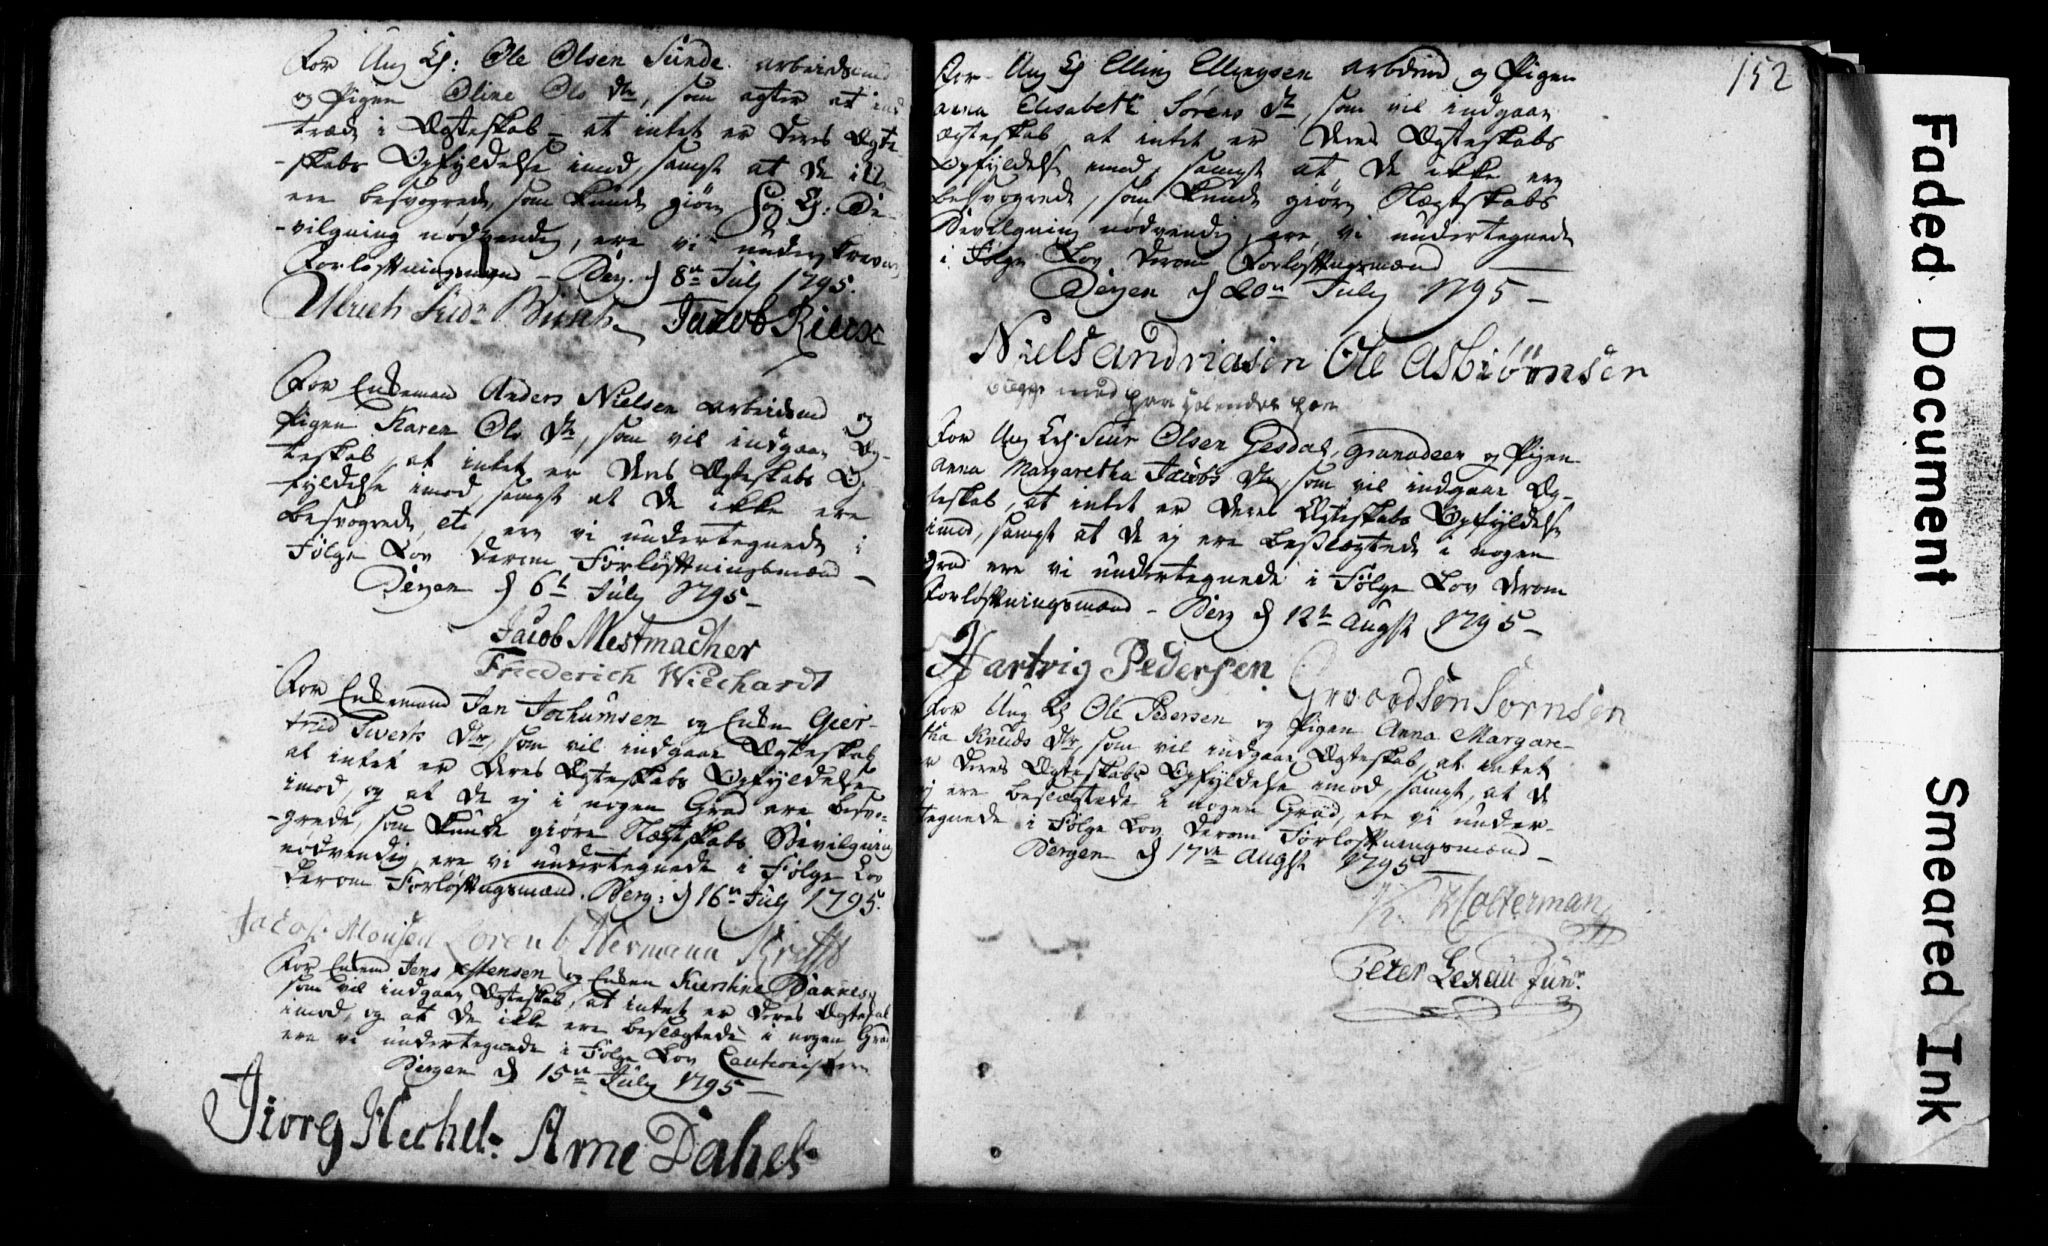 For Ung K: Ole Olsen Sunde arbeidsmd
og Pigen Oline Ols dtr, som agter at ind
træde i Ægteskab – at intet er Deres Ægte-
-skabs Opfyldelse imod, samt at De ikke
ere besvogrede, som kunde giøre Bevilgning nødvendig, ere vi underskrevne
Forlovningsmænd – Berg. d 8de July 1795.
Ulrich Jacob
For Enkemand Anders Nielsen arbeidsmd og
Pigen Karen Ols dtr, som vil indgaae Æg-
teskab, at intet er Deres Ægteskabs Op-
fyldelse imod, samt at De ikke ere
besvogrede, etc, ere vi undertegnede i
Følge Lov derom Forlovningsmænd –
Bergen d 6te July 1795 –
Jacob Mestmacher
Friederich Wiechardt
For Enkemand Jan Jochumsen og Enken Gier-
trud Siverts dtr, som vil indgaae Ægteskab
at intet er Deres Ægteskabs Opfyldelse
imod, og at De ej i nogen Grad ere besvo-
-grede, som kunde giøre Slægtskabs Bevilgning
nødvendig, ere vi undertegnede i Følge Lov
derom Forlovningsmænd. Berg: d 16de July 1795.
Jacob Monsen Lorentz Hermann
For Enkemd Jens og Enken Kierstine
som vil indgaae Ægteskab, at intet er Deres Ægteskab
imod, og at De ikke ere beslægtede i nogen Grad
ere vi undertegnede i Følge Lov Cautionister
Bergen d 15de July 1795 –
Jiorg Hechel. Arne Dahel
152
For Ung K Elling Ellingsen arbdmd og Pigen
Anna Elisabeth Sørens dtr, som vil indgaae
Ægteskab, at intet er Deres Ægteskabs
Opfyldelse imod, samt at De ikke ere
besvogrede, som kunde giøre Slægtskabs
Bevilgning nødvendig, ere vi undertegnede
i Følge Lov derom Forlovningsmænd
Bergen d 20de July 1795 –
Niels Andriasen Ole Asbiørnsen
For Ung K: Siur Olsen Gesdal, Granadeer og Pigen
Anna Margaretha Jacobs dtr, som vil indgaae Æg-
teskab, at intet er Deres Ægteskabs Opfyldelse
imod, samt at De ej ere beslægtede i nogen
Grad ere vi undertegnede i Følge Lov derom
Forlovningsmænd – Berg d 12te Augst 1795 –
Hartvig Pedersen
For Ung K Ole Pedersen og Pigen Anna Margare-
tha Knuds dtr, som vil indgaae Ægteskab, at intet
er Deres Ægteskabs Opfyldelse imod, samt, at De
ej ere beslægtede i nogen Grad, ere vi under-
tegnede i Følge Lov derom Forlovningsmænd –
Bergen d 17de Augst 1795
Holterman
Peter Lexau Junr.
Faded Document
Smeared Ink